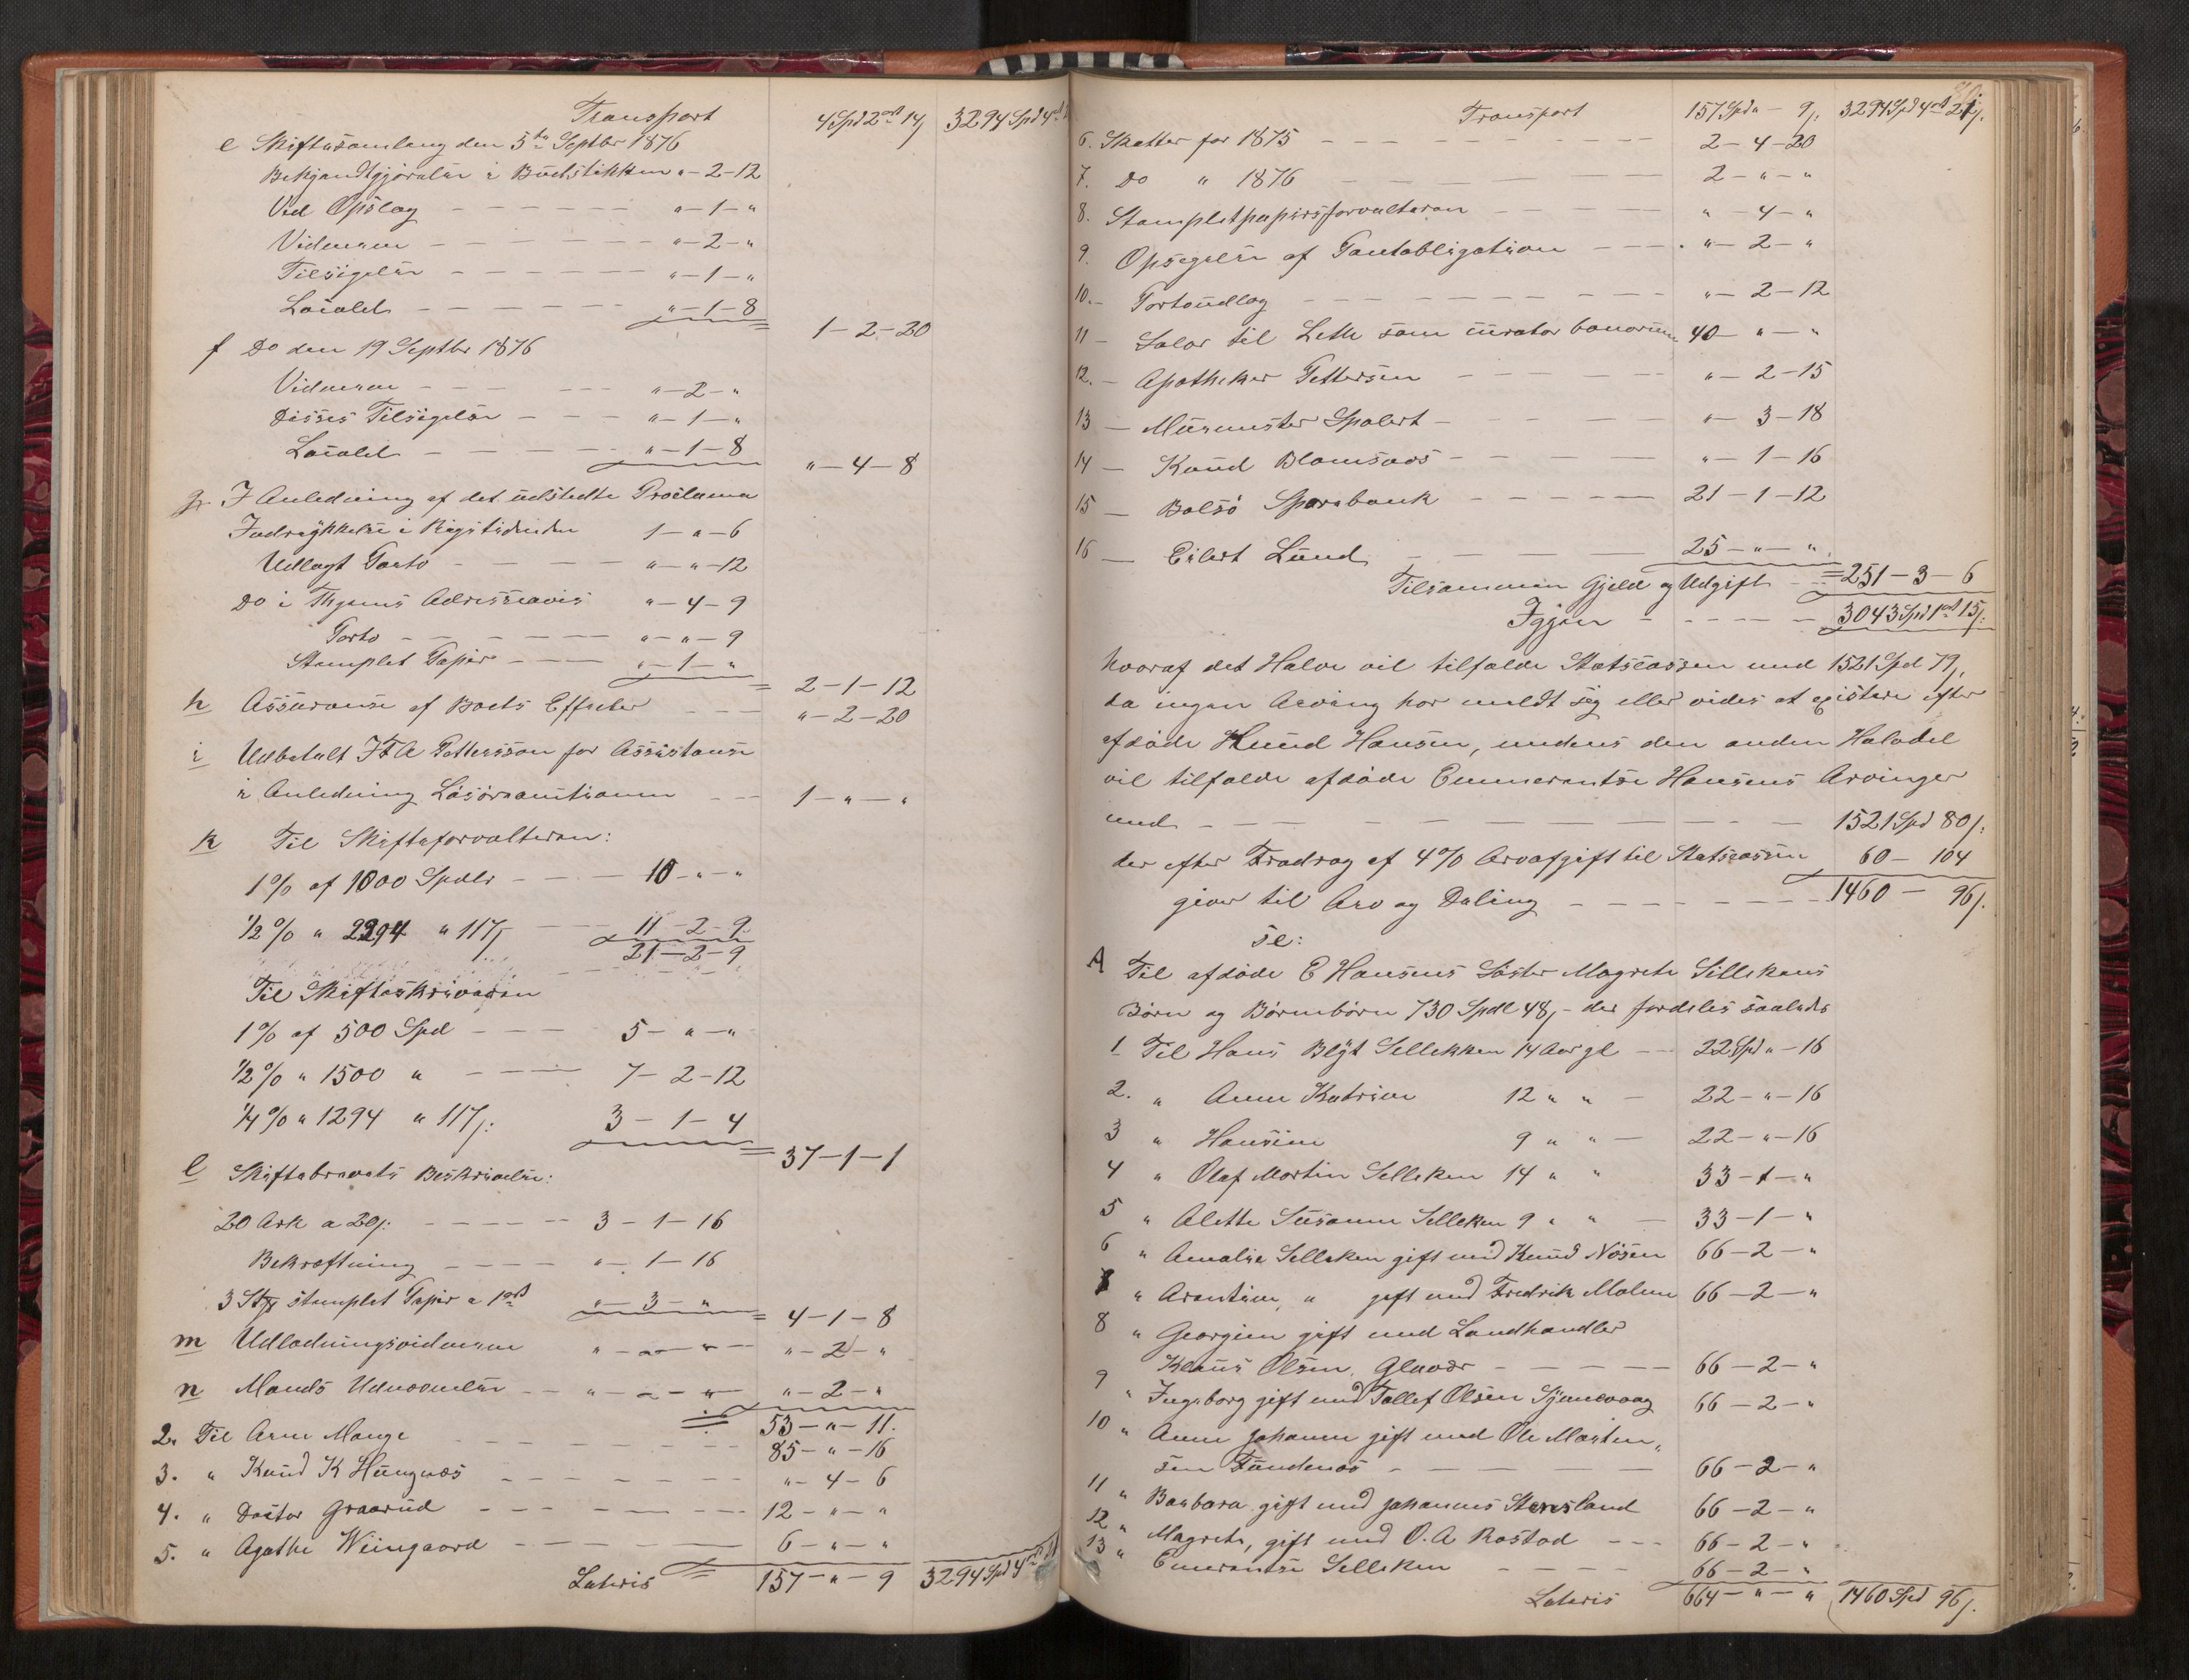 Transport 4 Spd 2 ort 14/ 3294 Spd 4 ort
e Skiftesamling den 5te Septbr 1876
Bekjendtgjørelse i Budstikken "-2-12
Ved Opslag "-1-"
Vidnerne "-2-"
Tilsigelse "-1-"
Localet "-1-8 = 1-2-20
f Do den 19 Septbr 1876
Vidnerne "-2-"
Disses Tilsigelse "-1-"
Localet "-1-8 "-4-8
g. I Anledning af det udstedte Proclama
Indrykkelse i Rigstidenden 1-"-6
Udlagt Porto "-"-12
Do i Thjems Adresseavis "-4-9
Porto "-"-9
Stemplet Papir "-1-" = 2-1-12
h Assurance af Boets Effecter "-2-20
i Udbetalt J F A Pettersson for Assistance
i Anledning Løsøreauctionen 1-"-"
k Til Skifteforvalteren:
1% af 1000 Spdlr 10-"-"
1/2% " 2294 " 117/ 11-2-9
21-2-9
Til Skifteskriveren
1% af 500 Spd 5-"-"
1/2% " 1500 " 7-2-12
1/4% " 1294 " 117/: 3-1-4
= 37-1-1
l Skiftebrevets Beskrivelse:
20 Ark a 20/: 3-1-16
Bekræftning "-1-16
3 Stk stemplet Papir a 1 ort "-3-" = 4-1-8
m Udlodningsvidnerne "-"-" "-2-"
n Mænds Udnævnelse "-"-" "-2-"
= 53-"-11.
2. Til Arne Mauge 85-"-16
3. " Knud K Hungnæs "-4-6
4. " Doctor Graarud 12-"-"
5. " Agathe Wiingaard 6-"-"
Lateris = 157-"-9 3294 Spd 4 ort
Transport 157 Spd " - 9/. 3294 Spd 4 ort 21/.
6. Skatter for 1875 2-4-20
7. Do " 1876 2-"-"
8. Stempletpapirsforvalteren "-4-"
9. Opsigelse af Pantobligation "-2-"
10.- Portoudlæg "-2-12
11 - Salær til Leth som curator bonorum 40-"-"
12.- Apotheker Pettersen "-2-15
13 - Muurmester Spolert "-3-18
14 - Knud Blomsaas "-1-16
15 - Bolsø Sparebank 21-1-12
16 - Eilert Lund 25-"-".
Tilsammen Gjeld og Udgift = 251-3-6
Igjen 3043 Spd 1 ort 15/:
hvoraf det Halve vil tilfalde Statscassen med 1521 Spd 79/,
da ingen Arving har meldt sig eller vides at existere efter
afdøde Knud Hansen, medens den anden Halvdel
vil tilfalde afdøde Emmerentse Hansens Arvinger
med 1521 Spd 80/:
der efter Fradrag af 4% Arveafgift til Statscassen 60 - 104
giver til Arv og Deling 1460 - 96/.
se:
A Til afdøde E Hansens Søster Magrete Sillekens
Børn og Børnebørn 730 Spdl 48/- der fordeles saaledes
1 Til Hans Blyt Sellekken 14 Aar gl 22 Spd "-16
2. " Anne Katrine 12 " " 22-"-16
3 " Hansine 9 " " 22-"-16
4 " Olaf Martin Selleken 14 " " 33-1-"
5 " Alette Susanne Selleken 9 " " 33-1-"
6 " Amalie Selleken gift med Knud Nøsen 66-2-"
7 " Arentine, " gift med Fredrik Molnes 66-2-"
8 " Georgine gift med Landhandler
Klaus Olsen, Gluvær 66-2-"
9 " Ingeborg gift med Tollef Olsen Sjurvaag 66-2-"
10 " Anne Johanne gift med Ole Morten„
sen Fundenæs 66-2-"
11 " Barbara gift med Johannes Stensland 66-2-"
12 " Magrete, gift med O. A Rostad 66-2-"
13 " Emerentse Selleken 66-2-"
Lateris 664-"-" 1460 Spd 96/.